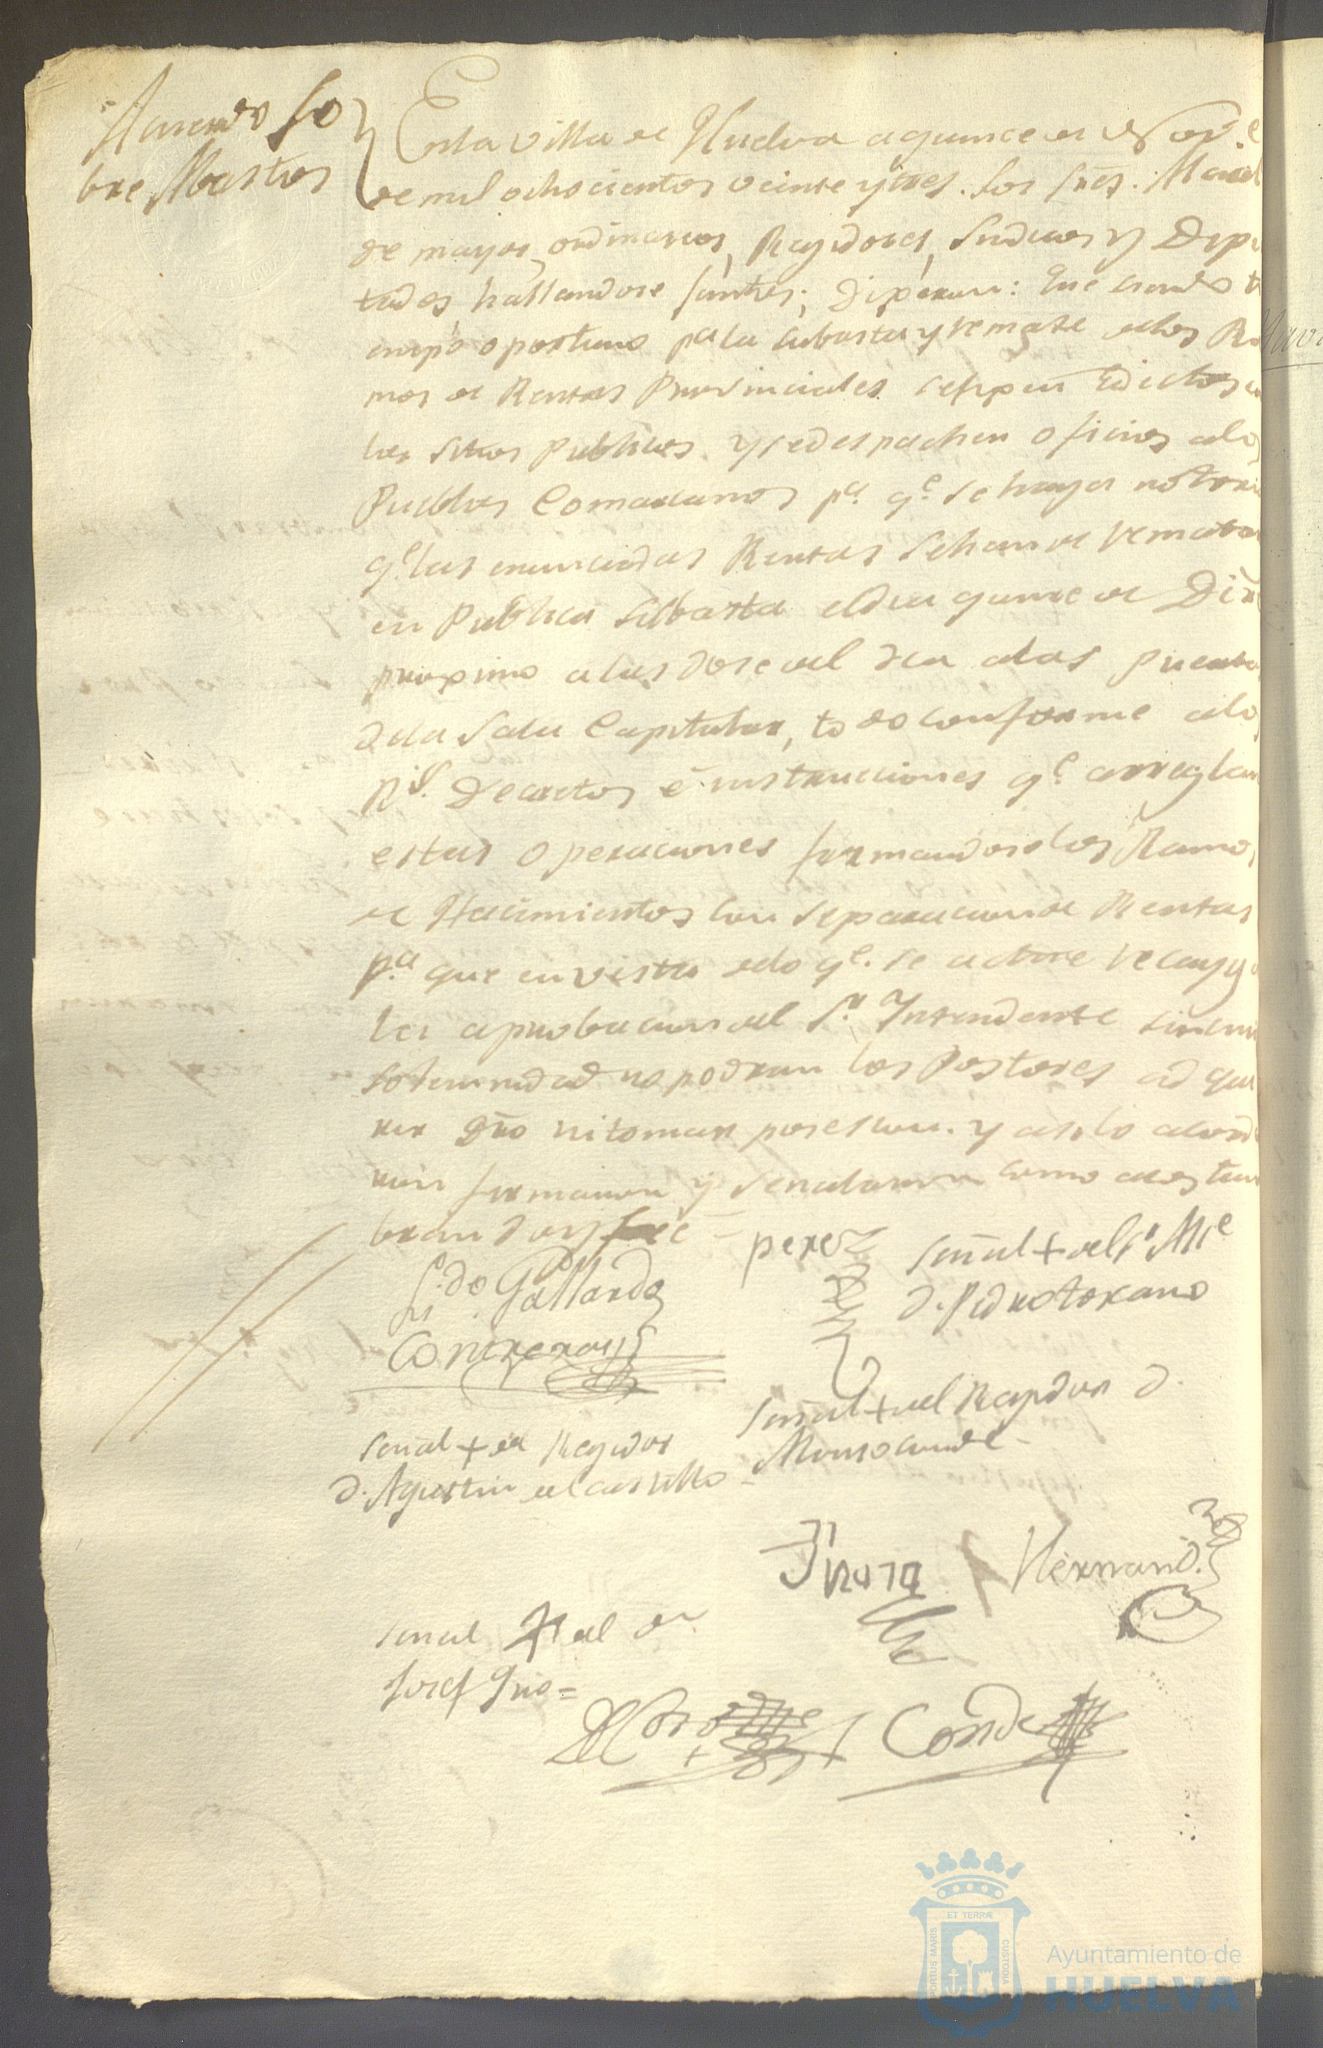 Acuerdo so
bre Abastos
En la villa de Huelva a quince de Nov.e
de mil ochocientos veinte y tres. los Sres. Alcal
de mayor, ordinarios, Regidores, Sindicos y Dipu
tados hallandose juntos; Dixeron: Que siendo ti
empo oportuno pa. la subasta y remate de los Ra
mos de Rentas Provinciales se fixen Edictos en
los sitios publicos y se despachen oficios a los
Pueblos Comarcanos pa. qe. se haga notorio
qe. las enunciadas Rentas se han de rematar
en Publica Subasta el dia quince de Dize
proximo a las dose del dia a las puertas
de la Sala Capitular, todo conforme a los
Rs. Decretos e instrucciones qe. arreglan
estas operaciones formandose los Ramos
de Hacimientos con separacion de Rentas
pa. que en vista de lo qe. se actue recayga
la aprobacion del Sr. Intendente sin cuya
solemnidad no podran los Postores adqui
rir dro ni tomar posesion. y asi lo acorda
ron firmaron y señalaron como acostum
bran doy fee =
Ldo. Gallardo
Contreras
perez
señal + del Sr. Alle
D. Pedro toxano
señal + del Regidor
D. Agustin del castillo
señal + del Regidor D.
Alonso conde
Hernand.
señal + del
Josef
Conde
ET TERRAE
PORTUS MARIS
CUSTODIA
Ayuntamiento de
HUELVA